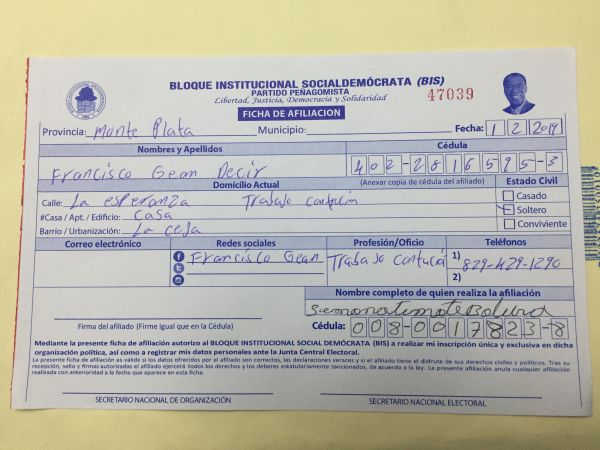 BLOQUE INSTITUCIONAL SOCIALDEMÓCRATA (BIS)
PARTIDO PEÑAGOMISTA
Libertad, Justicia, Democracia y Solidaridad
47039
FICHA DE AFILIACION
Provincia: Monte Plata Municipio: Fecha: 1 2 2019
Nombres y Apellidos Cédula
Francisco Gean Decir 402-2816595-3
Domicilio Actual (Anexar copia de cédula del afiliado) Estado Civil
Calle: La esperanza Trabajo Casado
#Casa / Apt. / Edificio: Casa Soltero
Barrio / Urbanización: La Conviviente
Correo electrónico Redes sociales Profesión/Oficio Teléfonos
Francisco Gean Trabajo 1) 829-429-1290
2)
Nombre completo de quien realiza la afiliación
Firma del afiliado (Firme igual que en la Cédula) Cédula: 008-0017823-8
Mediante la presente ficha de afiliación autorizo al BLOQUE INSTITUCIONAL SOCIAL DEMÓCRATA (BIS) a realizar mi inscripción única y exclusiva en dicha
organización política, así como a registrar mis datos personales ante la Junta Central Electoral.
La presente ficha de afiliación es válida si los datos ofrecidos por el afiliado son correctos, las declaraciones veraces y si el afiliado tiene el disfrute de sus derechos civiles y políticos. Tras su
recepción, sello y firmas autorizadas el afiliado ejercerá todos los derechos y los deberes estatutariamente sancionados, de acuerdo a la ley. La presente afiliación anula cualquier afiliación
realizada con anterioridad a la fecha que aparece en esta ficha.
SECRETARIO NACIONAL DE ORGANIZACIÓN SECRETARIO NACIONAL ELECTORAL